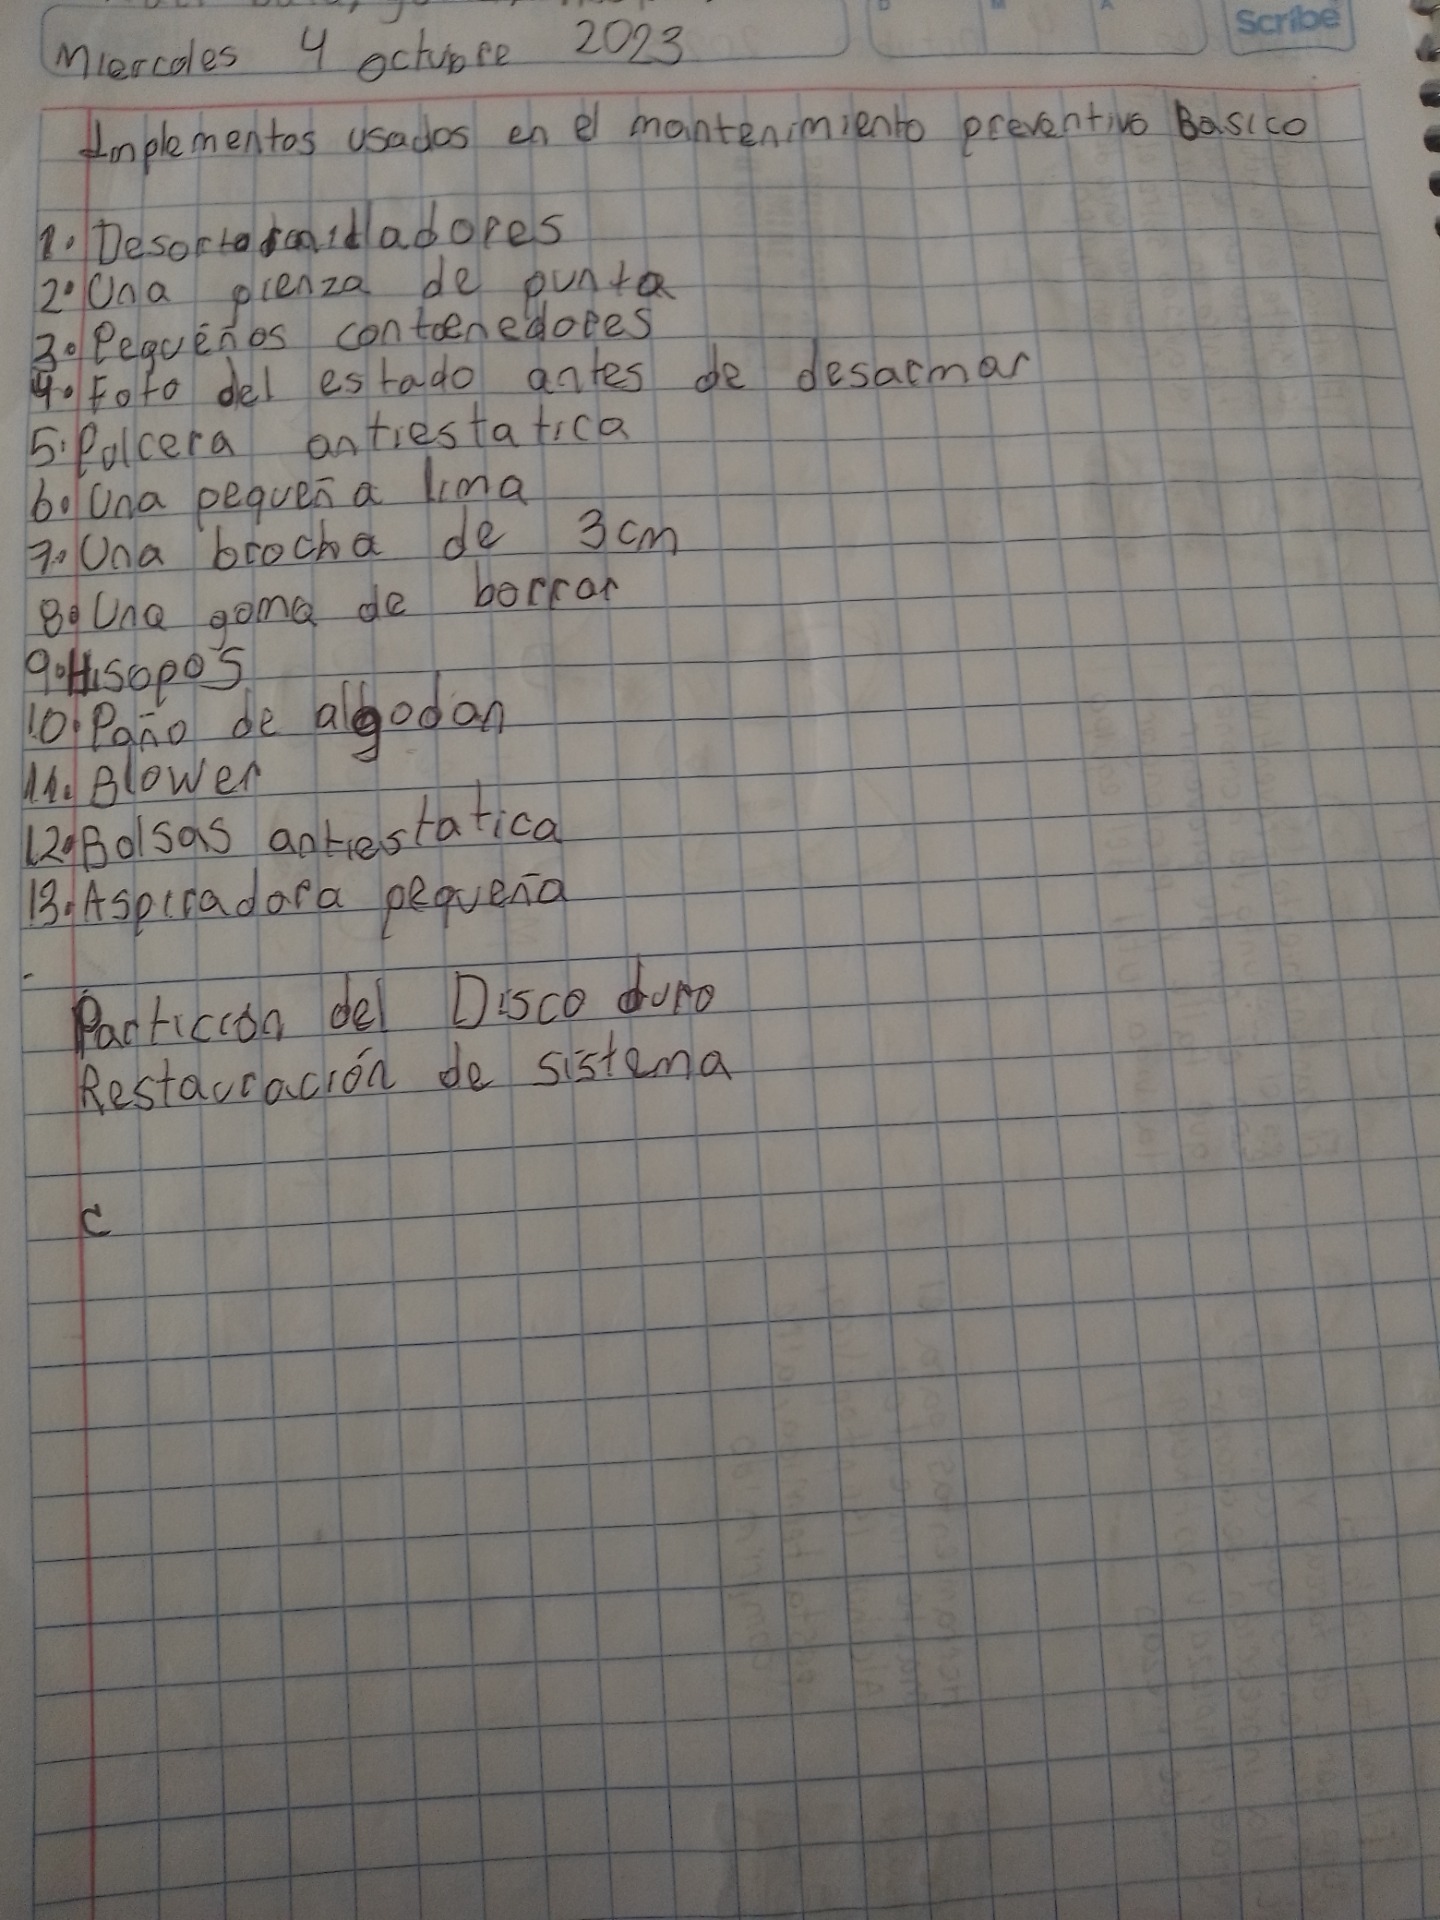 Scribe
Miercoles 4 octubre 2023
Implementos usados en el mantenimiento preventivo Basico
1. Desortornilladores
2. Una pienza de punta
3. Pequeños contoenedores
4. Foto del estado antes de desarmar
5. Polcera antiestatica
6. Una pequeña lima
7. Una brocha de 3 cm
8. Una goma de borrar
9. Hisopos
10. Paño de algodon
11. Blower
12. Bolsas antiestatica
13. Aspiradora pequeña
Particion del Disco duro
Restauración de sistema
C